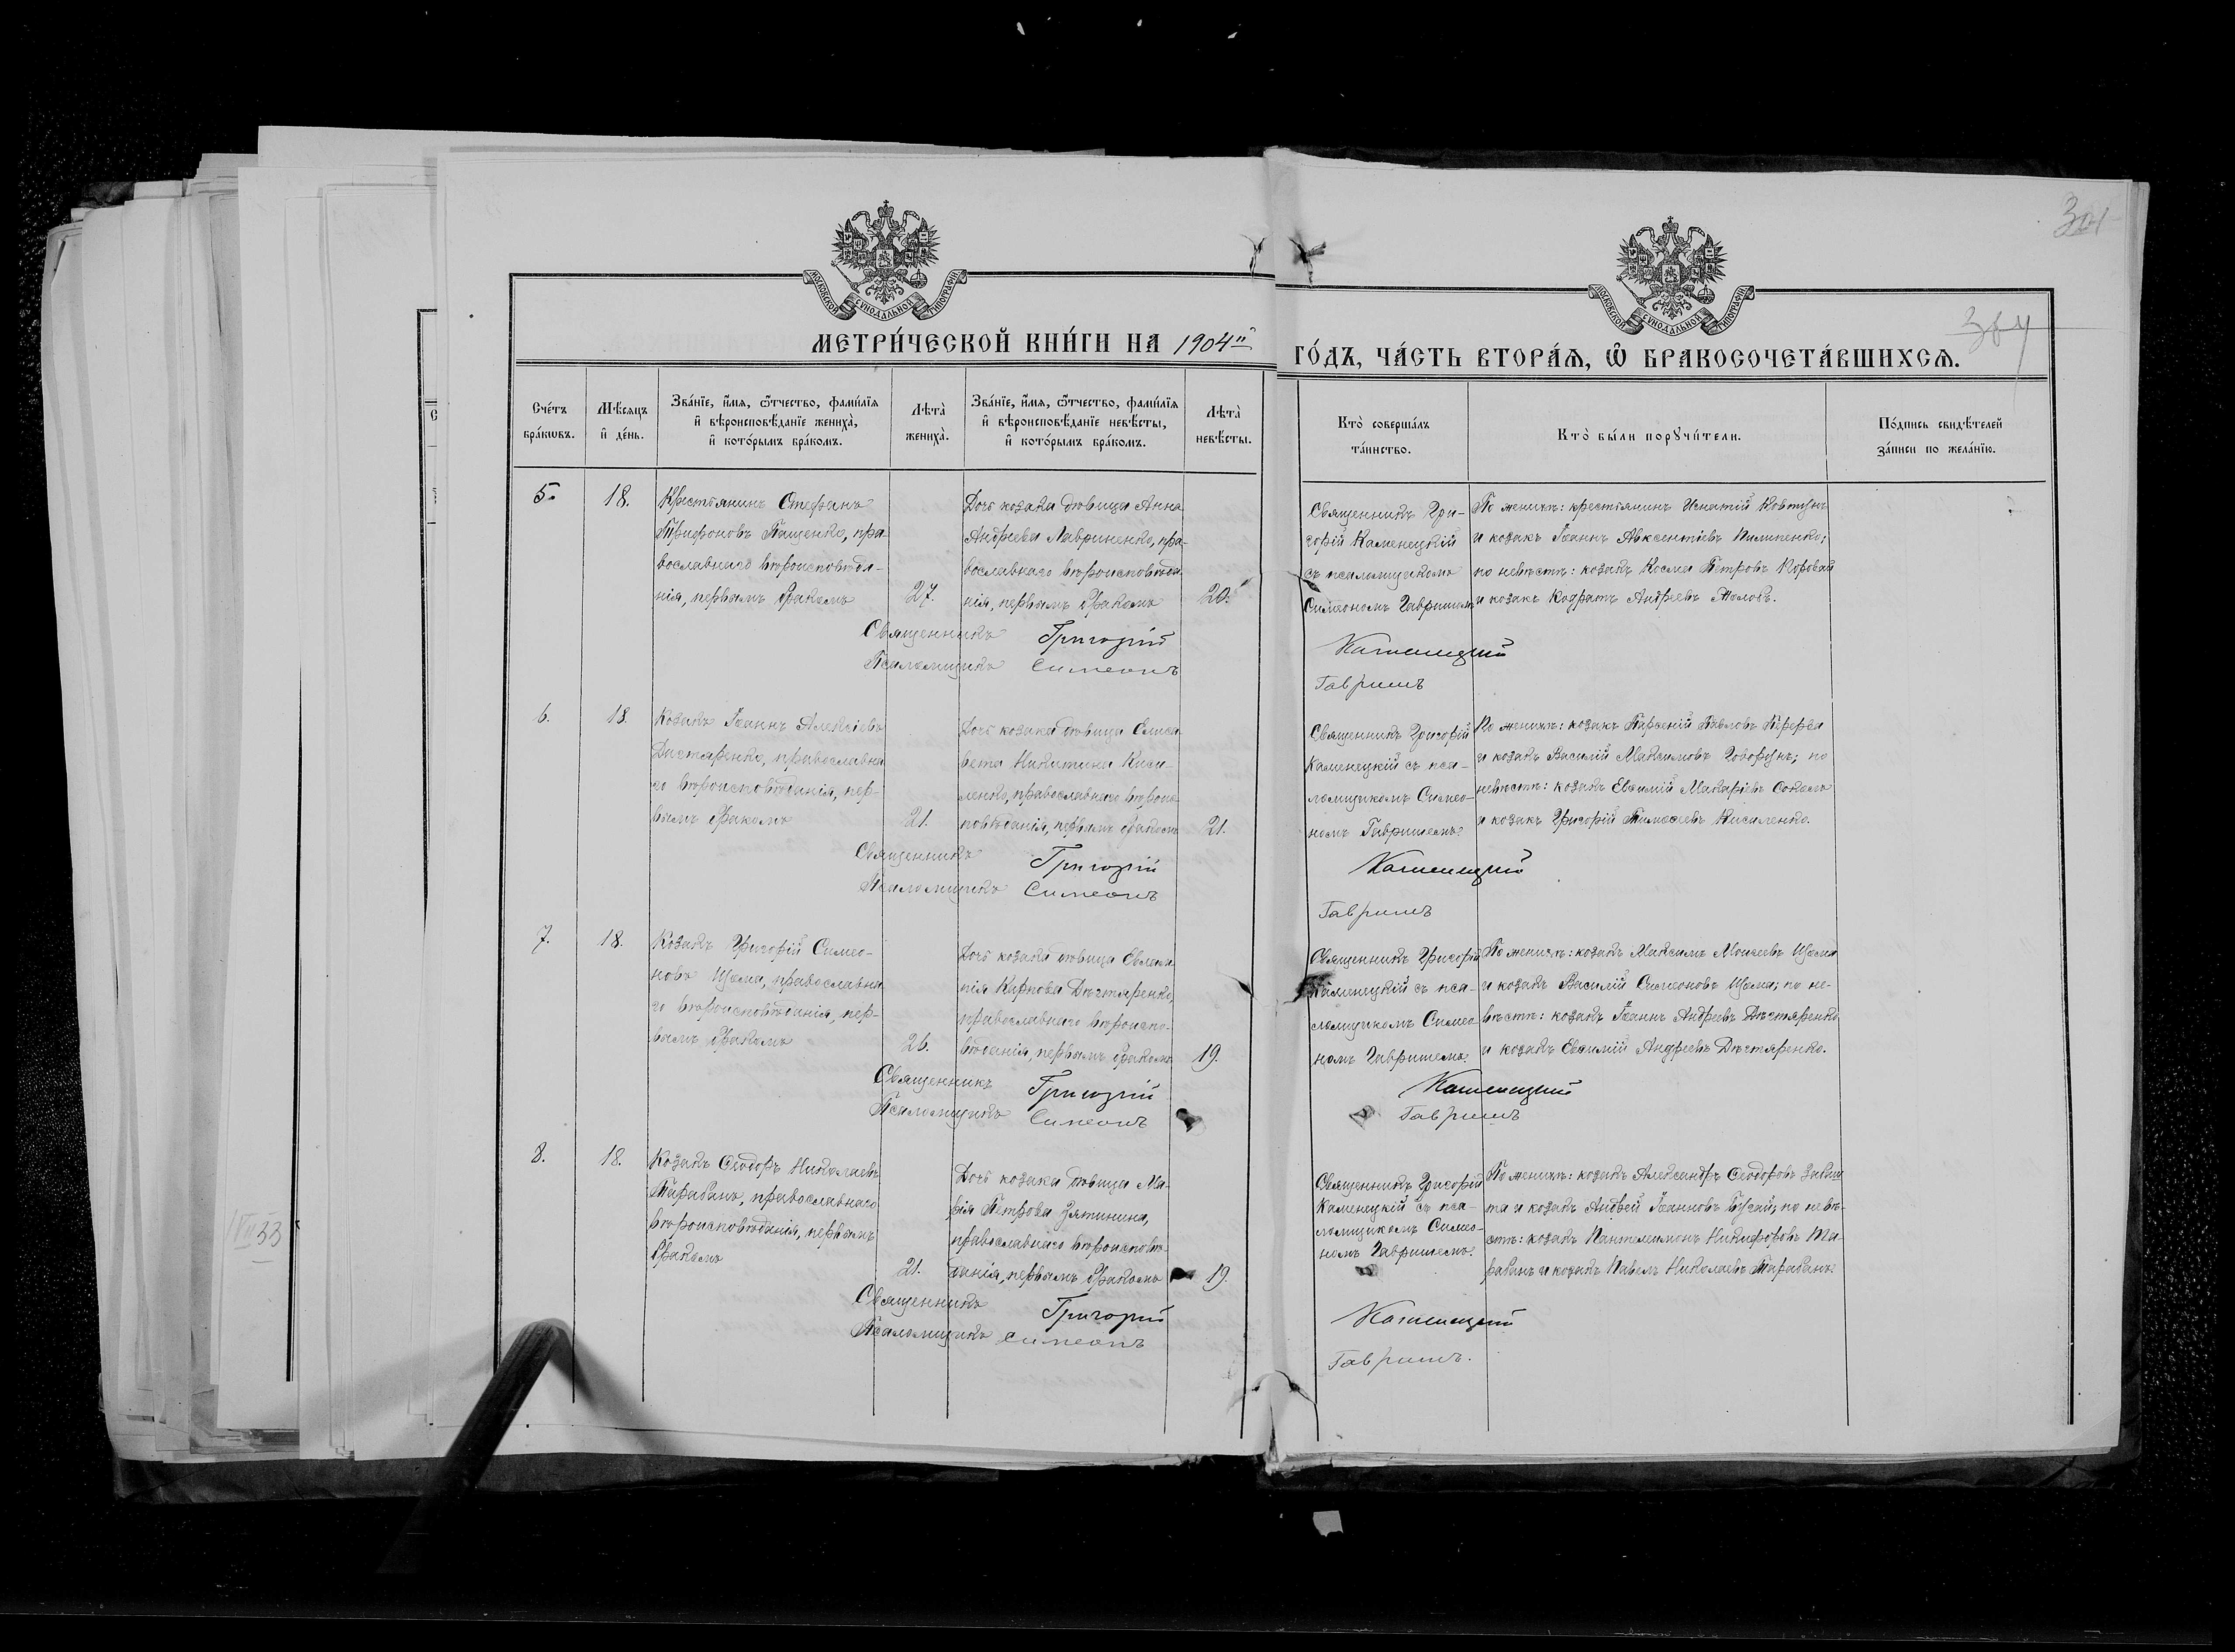 301
364
МОСКОВСКОЙ СѴНОДАЛЬНОЙ ТИПОГРАФІИ
МОСКОВСКОЙ СѴНОДАЛЬНОЙ ТИПОГРАФІИ
МЕТРИ́ЧЕСКОЙ КНИ́ГИ НА 1904й
ГО́ДЪ, ЧА́СТЬ ВТОРА́Ѧ, Ѡ҆ БРАКОСОЧЕТА́ВШИХСѦ.
Сче́тъ
бра́кωвъ.
Мѣ́сяцъ
и҆ де́нь.
Зва́нїе, и҆́мя, ѻ҆́тчество, фами́лїя
и҆ вѣроисповѣ́данїе жениха̀,
и҆ кото́рымъ бра́комъ.
Лѣта̀
жениха̀.
Зва́нїе, и҆́мя, ѻ҆́тчество, фами́лїя
и҆ вѣроисповѣ́данїе невѣ́сты,
и҆ кото́рымъ бра́комъ.
Лѣта̀
невѣ́сты.
Кто̀ соверша́лъ
та́инство.
Кто̀ бы́ли порꙋчи́тели.
По́дпись свидѣ́телей
за́писи по жела́нїю.
5.
18.
Крестьянинъ Стефанъ
Трифоновъ Пащенко, пра-
вославнаго вѣроисповѣда-
нія, первымъ бракомъ
27.
Дочь козака дѣвица Анна
Андреева Лавриненко, пра-
вославнаго вѣроисповѣда
нія, первымъ бракомъ
20.
Священникъ Гри-
горій Каменецкій
съ псаломщикомъ
Симеономъ Гавришемъ
По женихѣ: крестьянинъ Игнатій Ковтунъ
и козакъ Іоаннъ Авксентіевъ Пилипенко;
по невѣстѣ: козакъ Косма Петровъ Коровай
и козакъ Кодратъ Андреевъ
Священникъ Григорій Каменецкий
Псаломщикъ Симеонъ Гавришъ
6.
18.
Козакъ Іоаннъ Алексіевъ
Дегтяренко, православна
го вѣроисповѣданія, пер-
вымъ бракомъ
21.
Дочь козака дѣвица Елиса
вета Никитина Киси-
ленко, православнаго вѣроис
повѣданія, первымъ бракомъ
21.
Священникъ Григорій
Каменецкій съ пса-
ломщикомъ Симео-
номъ Гавришемъ.
По женихѣ: козакъ Парѳеній Павловъ Перерва
и козакъ Василій Максимовъ Говорунъ; по
невѣстѣ: козакъ Евѳимій Макаріевъ
и козакъ Григорій Тимоѳеевъ Кисиленко.
Священникъ Григорій Каменецкий
Псаломщикъ Симеонъ
Гавришъ
7.
18.
Козакъ Григорій Симео-
новъ Щома, православна
го вѣроисповѣданія, пер-
вымъ бракомъ
26.
Дочь козака дѣвица Евлам
пія Карпова Дегтяренко,
православнаго вѣроиспо-
вѣданія, первымъ бракомъ
19.
Священникъ Григорій
Каменецкій съ пса-
ломщикомъ Симео-
номъ Гавришемъ.
По женихѣ: козакъ Максимъ Моисеевъ Щома
и козакъ Василій Симеоновъ Щома; по не-
вѣстѣ: козакъ Іоаннъ Андреевъ Дегтяренко
и козакъ Евѳимій Андреевъ Дегтяренко.
Священникъ Григорій Каменецкий
Псаломщикъ Симеонъ Гавришъ
8.
18.
Козакъ Ѳеодоръ Николаевъ
Тараванъ, православнаго
вѣроисповѣданія, первымъ
бракомъ
21.
Дочь козака дѣвица Ма-
рія Петрова Зятинина,
православнаго вѣроисповѣ-
данія, первымъ бракомъ
19.
Священникъ Григорій
Каменецкій съ пса-
ломщикомъ Симео-
номъ Гавришемъ.
По женихѣ: козакъ Александръ Ѳеодоровъ
та и козакъ Андрей Іоанновъ Бугай; по невѣ-
стѣ: козакъ Пантелеимонъ Никифоровъ Та-
раванъ и козакъ Павелъ Николаевъ Тараванъ.
Священникъ Григорій Каменецкий
Псаломщикъ Симеонъ Гавришъ.